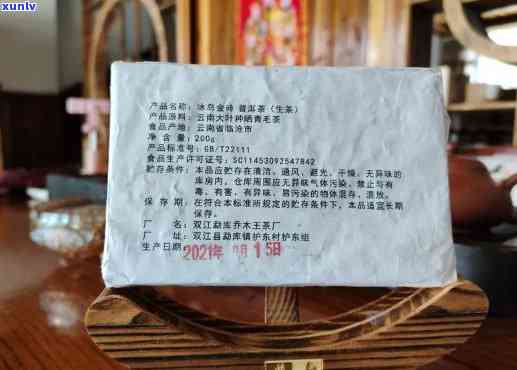 xuntv
产品名称：冰岛金砖 普洱茶（生茶）
产品原料：云南大叶种晒青毛茶
食品产地：云南省临沧市
净　　含　　量：200g
产品标准号：GB/T22111
食品生产许可证号：SC11453092547842
贮存条件：本品应贮存在清洁、通风、避光、干燥、无异味的
库房内，仓库周围应无异味气体污染，禁止与有
毒、有害、有异味、易污染的物体混存、混放。
保 存 期：在符合本标准所规定的贮存条件下，本品适宜长期
保存。
厂　　名：双江勐库乔木王茶厂
厂　　址：双江县勐库镇护东村护东组
生产日期：
2021年 月15日